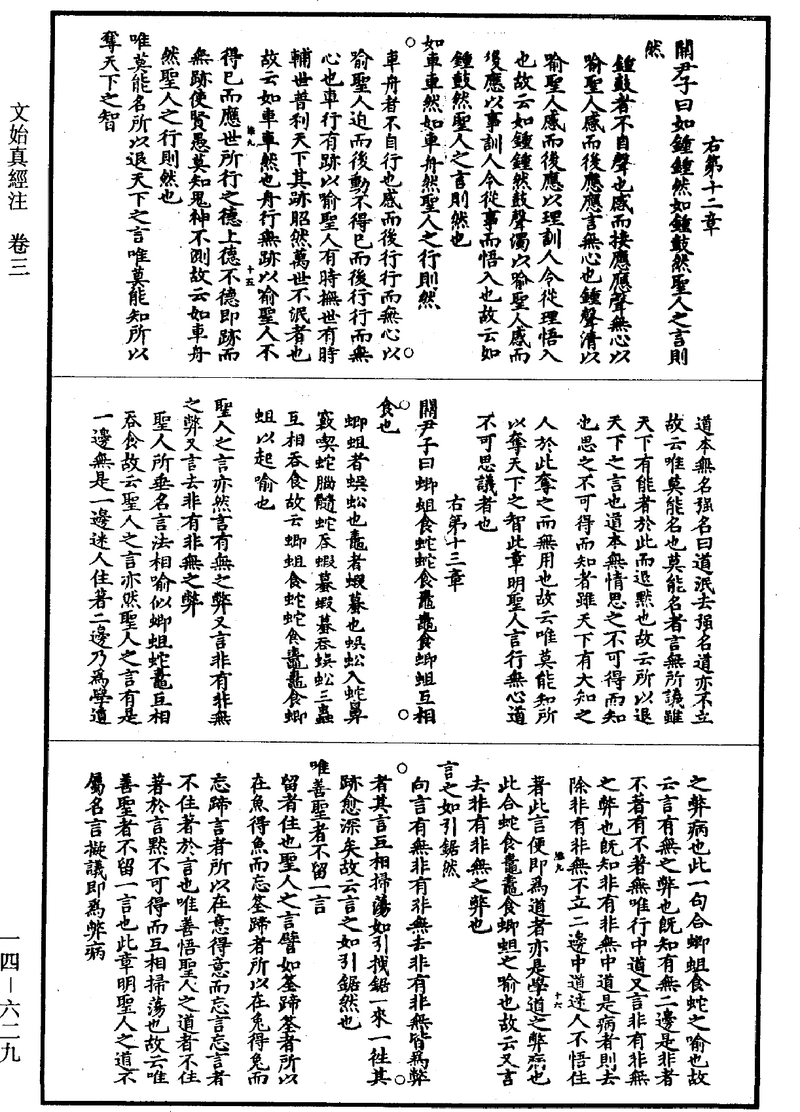 右第十二章
關尹子曰如鍾鍾然如鍾鼓然聖人之言則
然
鍾鼓者不自聲也感而接應應聲無心以
喻聖人感而後應應言無心也鍾聲清以
喻聖人感而後應以理訓人令從理悟入
也故云如鍾鍾然鼓聲濁以喻聖人感而
後應以事訓人令從事而悟入也故云如
鍾鼓然聖人之言則然也
如車車然如車舟然聖人之行則然
車舟者不自行也感而後行行而無心以
喻聖人迫而後動不得已而後行行而無
心也車行有跡以喻聖人有時撫世有時
輔世普利天下其跡昭然萬世不泯者也
故云如車車然也舟行無跡以喻聖人不
得已而應世所行之德上德不德即跡而
無跡使賢愚莫知鬼神不測故云如車舟
然聖人之行則然也
唯莫能名所以退天下之言唯莫能知所以
奪天下之智
道本無名强名曰道泯去强名道亦不立
故云唯莫能名也莫能名者言無所議雖
天下有能者於此而退默也故云所以退
天下之言也道本無情思之不可得而知
也思之不可得而知者雖天下有大知之
人於此奪之而無用也故云唯莫能知所
以奪天下之智此章明聖人言行無心道
不可思議者也
右第十三章
關尹子曰蝍蛆食蛇蛇食鼃鼃食蝍蛆互相
食也
蝍蛆者蜈蚣也鼃者蝦蟇也蜈蚣入蛇鼻
竅喫蛇腦髓蛇吞蝦蟇蝦蟇吞蜈蚣三蟲
互相吞食故云蝍蛆食蛇蛇食鼃鼃食蝍
蛆以起喻也
聖人之言亦然言有無之弊又言非有非無
之弊又言去非有非無之弊
聖人所垂名言法相喻似蝍蛆蛇鼃互相
吞食故云聖人之言亦然聖人之言有是
一邊無是一邊迷人住著二邊乃爲學道
之弊病也此一句合蝍蛆食蛇之喻也故
云言有無之弊也既知有無二邊是非者
不著有不著無唯行中道又言非有非無
之弊也既知非有非無中道是病者則去
除非有非無不立二邊中道迷人不悟住
著此言便即爲道者亦是學道之弊病也
此合蛇食鼃鼃食蝍蛆之喻也故云又言
去非有非無之弊也
言之如引鋸然
向言有無非有非無去非有非無皆爲弊
者其言互相掃蕩如引拽鋸一來一徃其
跡愈深矣故云言之如引鋸然也
唯善聖者不留一言
留者住也聖人之言譬如筌蹄筌者所以
在魚得魚而忘筌蹄者所以在兔得兔而
忘蹄言者所以在意得意而忘言忘言者
不住著於言也唯善悟聖人之道者不住
著於言默不可得而互相掃蕩也故云唯
善聖者不留一言也此章明聖人之道不
屬名言擬議即爲弊病
文始真經注　卷三
一四—六二九